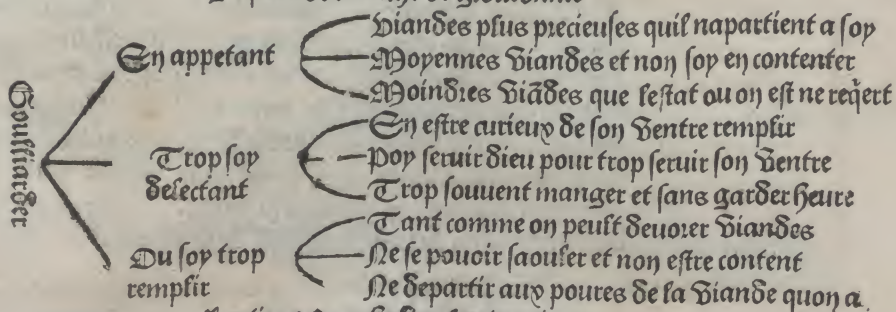 Gouffiarder
En appetant
Viandes plus precieuses quil napartient a soy
Moyennes viandes et non soy en contenter
Moindres viãdes que lestat ou on est ne reqert
Trop soy
delectant
En estre curieux de son ventre remplir
Poy seruir dieu pour trop seruir son ventre
Trop souuent manger et sans garder heure
Ou soy trop
remplir
Tant comme on peult deuorer viandes
Ne se pouoir saouler et non estre content
Ne departir aux poures de la viande quon a